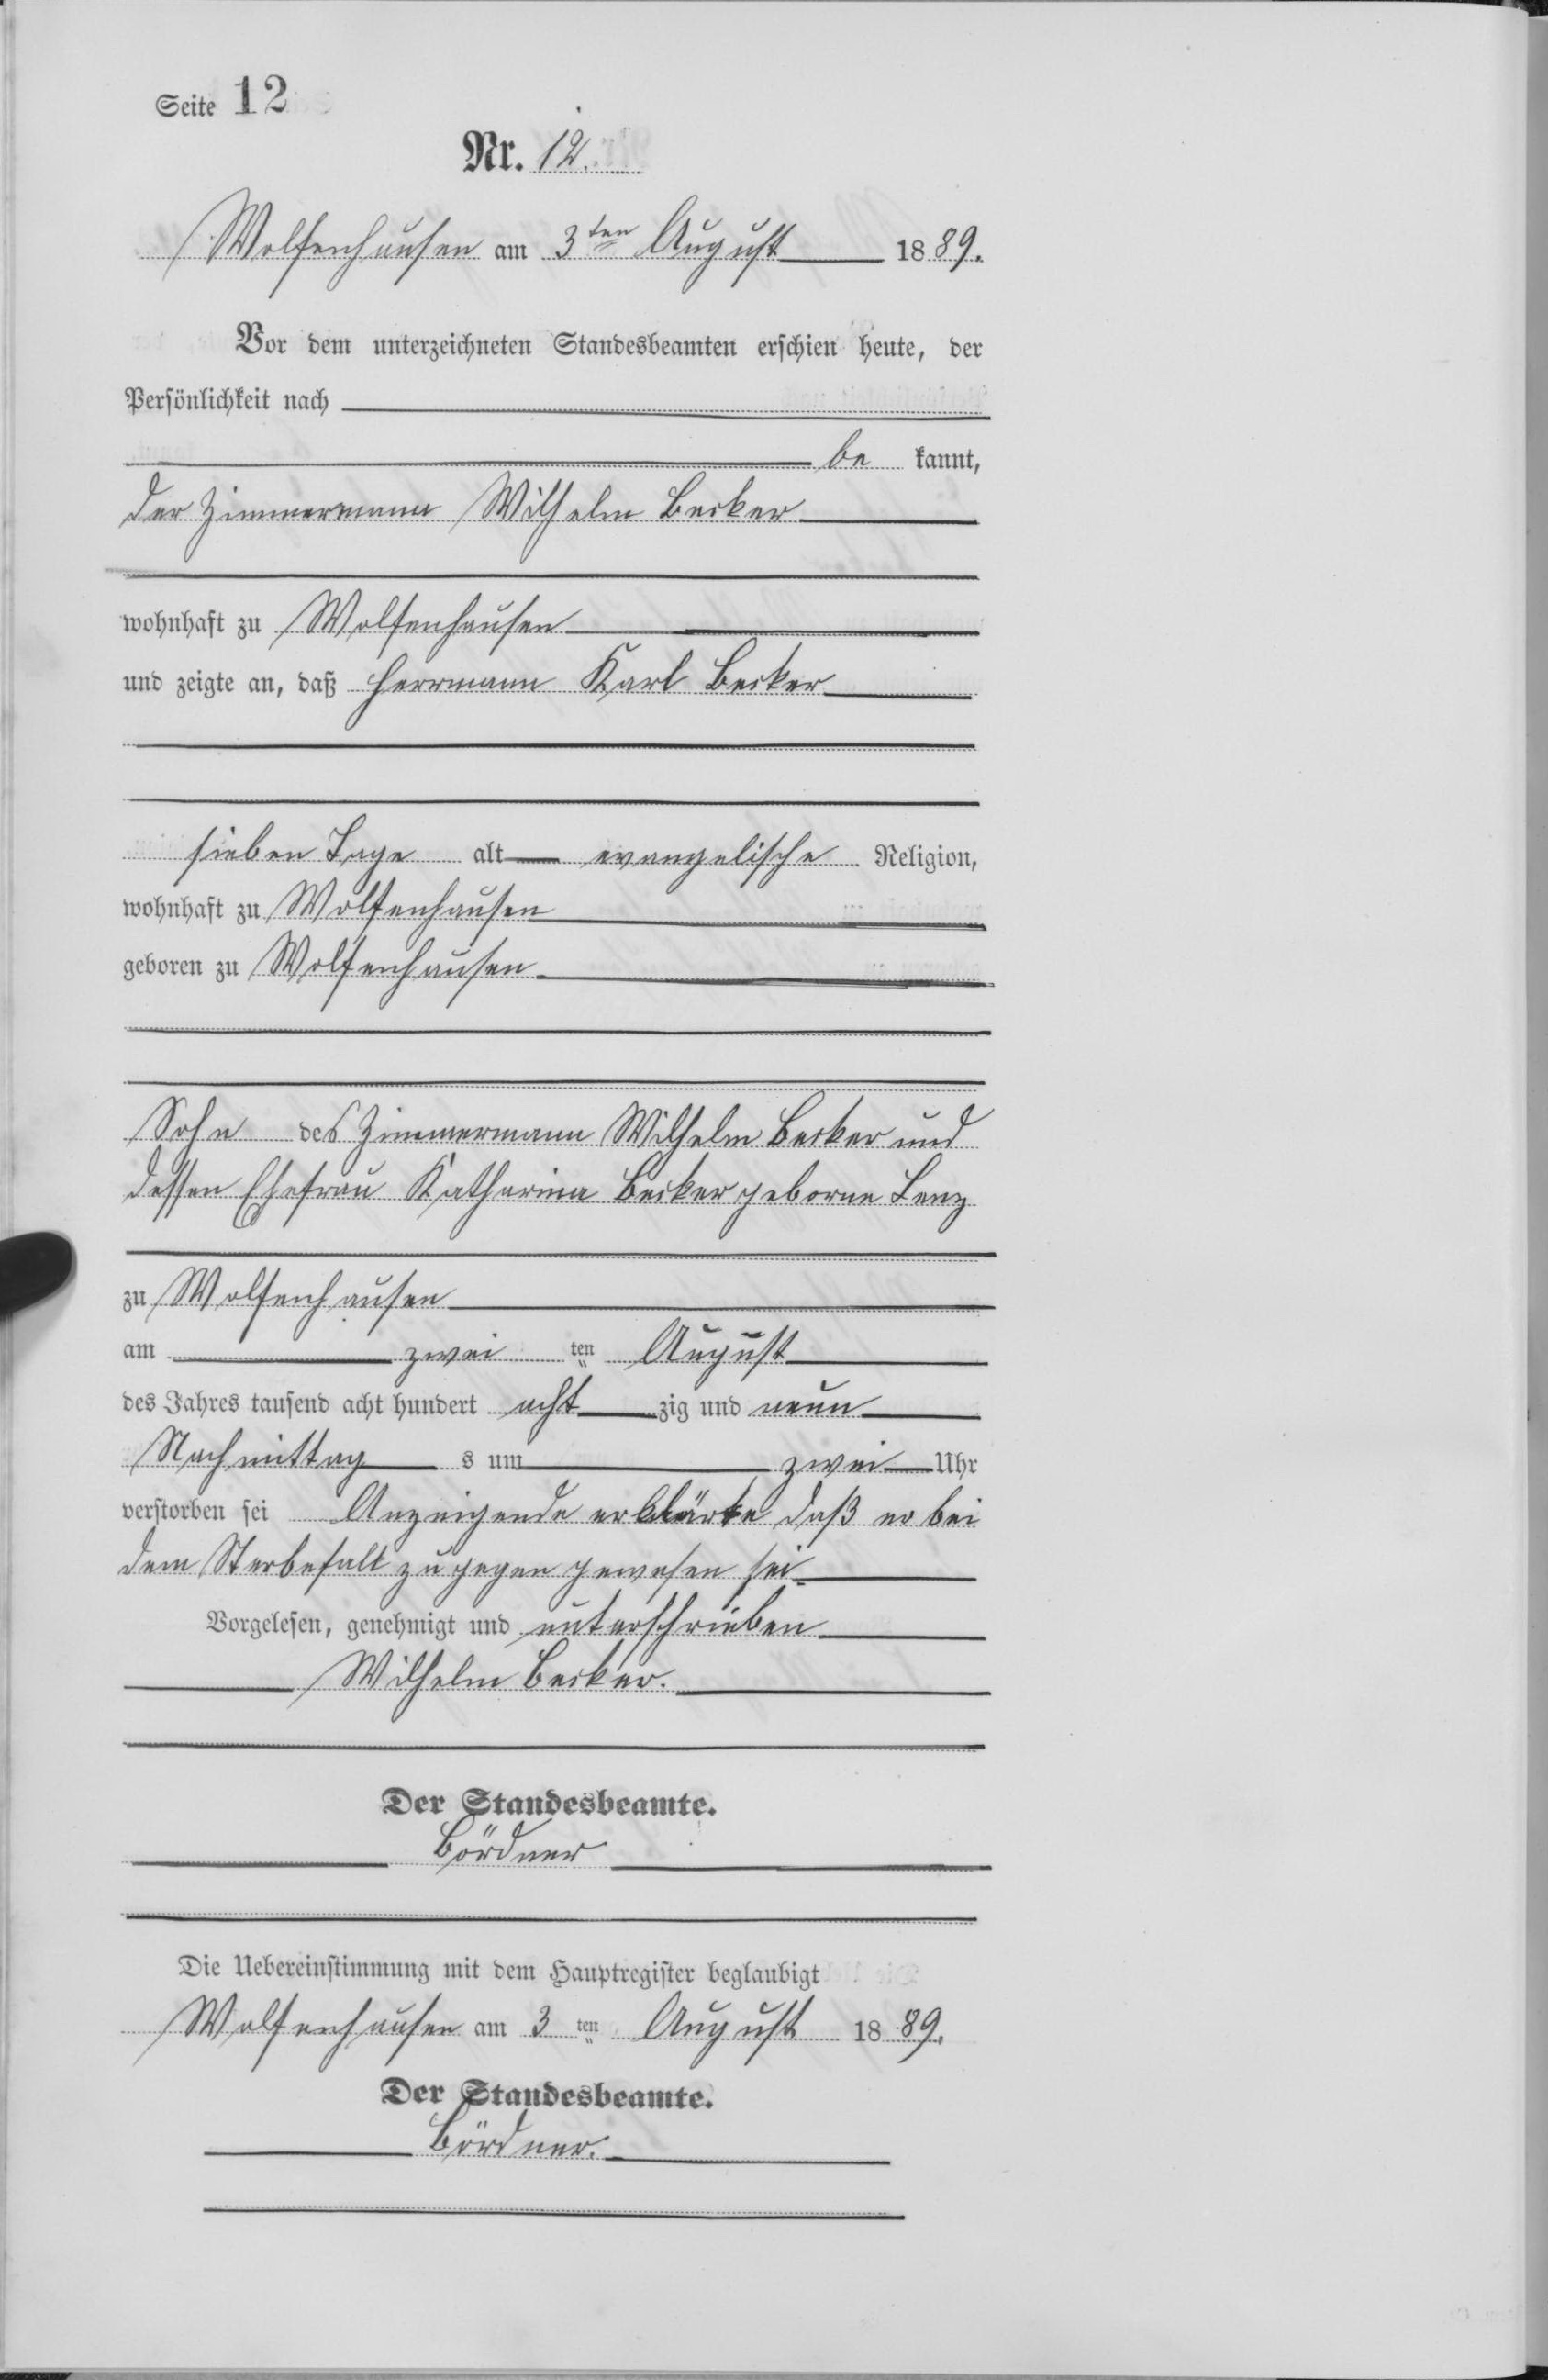 Seite 12
Nr. 12.
Wolfenhausen am 3ten August 1889.
Vor dem unterzeichneten Standesbeamten erschien heute, der
Persönlichkeit nach
be kannt,
der Zimmermann Wilhelm Becker
wohnhaft zu Wolfenhausen
und zeigte an, daß Herrmann Karl Becker
sieben Tage alt evangelische Religion,
wohnhaft zu Wolfenhausen
geboren zu Wolfenhausen
Sohn des Zimmermann Wilhelm Becker und
dessen Ehefrau Katharina Becker geborne Lenz
zu Wolfenhausen
am zwei ten August
des Jahres tausend acht hundert acht zig und neun
Nachmittag s um zwei Uhr
verstorben sei Anzeigende erklärte daß er bei
dem Sterbefall zugegen gewesen sei
Vorgelesen, genehmigt und unterschrieben
Wilhelm Becker.
Der Standesbeamte.
Bördner
Die Uebereinstimmung mit dem Hauptregister beglaubigt
Wolfenhausen am 3 ten August 1889.
Der Standesbeamte.
Bördner.